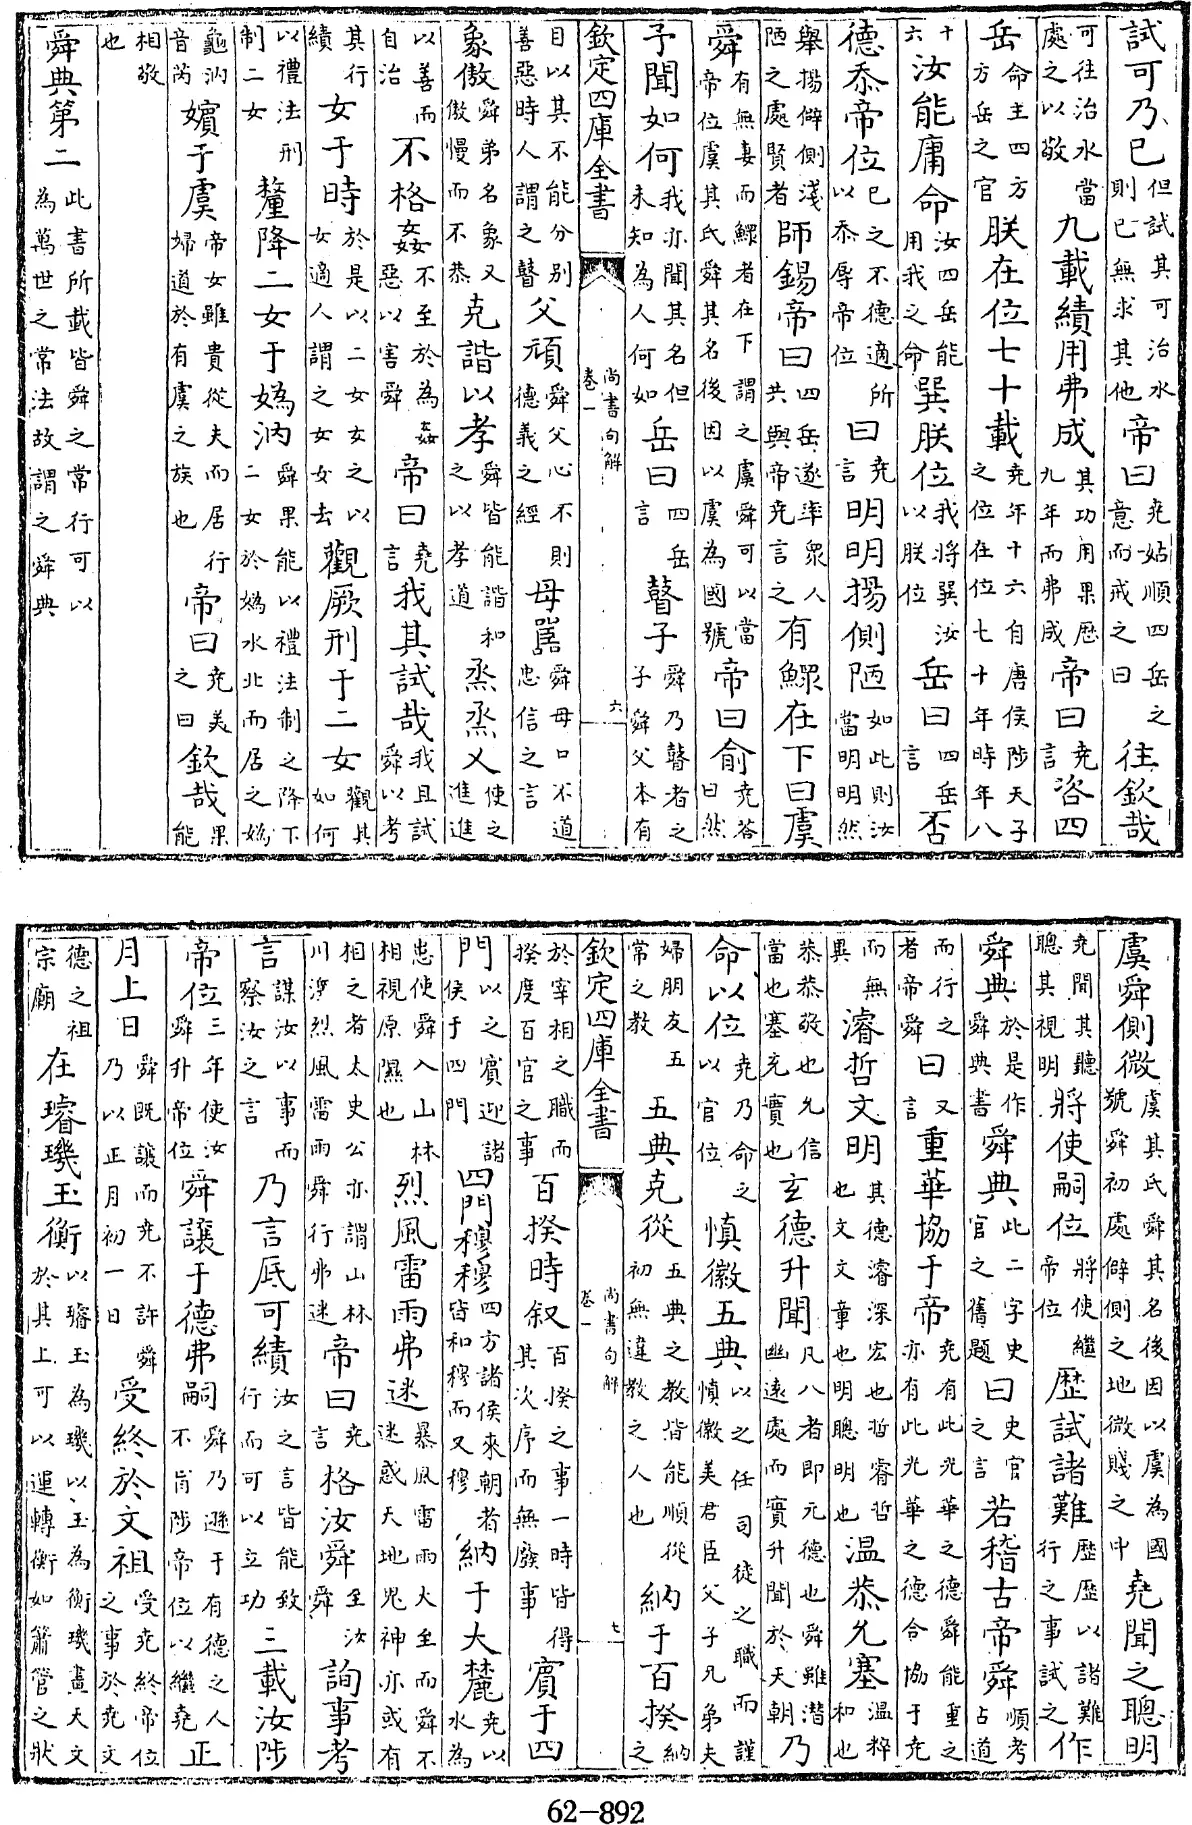 試可乃已但試其可治水則已無求其他帝曰堯姑順四岳之意而戒之曰往欽哉
可往治水當處之以敬九載績用弗成其功用果歴九年而弗成帝曰堯言咨四
岳命主四方方岳之官朕在位七十載堯年十六自唐侯陟天子之位在位七十年時年八
十六汝能庸命汝四岳能用我之命巽朕位我將巽汝以朕位岳曰四岳言否
德忝帝位已之不德適所以忝辱帝位曰堯言明明揚側陋如此則汝當明明然
舉揚僻側淺陋之處賢者師錫帝曰四岳遂率衆人共與帝堯言之有鰥在下曰虞
舜有無妻而鰥者在下謂之虞舜可以當帝位虞其氏舜其名後因以虞為國號帝曰俞堯答曰然
予聞如何我亦聞其名但未知為人何如岳曰四岳言瞽子舜乃瞽者之子舜父本有
欽定四庫全書
尚書句解
卷一
六
目以其不能分别善惡時人謂之瞽父頑舜父心不則德義之經母嚚舜母口不道忠信之言
象傲舜弟名象又傲慢而不恭克諧以孝舜皆能諧和之以孝道烝烝乂使之進進
以善而自治不格姦不至於為姦惡以害舜帝曰堯言我其試哉我且試舜以考
其行績女于時於是以二女女之以女適人謂之女女去觀厥刑于二女觀其如何
以禮法刑制二女釐降二女于媯汭舜果能以禮法制之降下二女於媯水北而居之媯
龜汭音芮嬪于虞帝女雖貴從夫而居行婦道於有虞之族也帝曰堯美之曰欽哉果能
相敬也
舜典第二此書所載皆舜之常行可以為萬世之常法故謂之舜典
虞舜側微虞其氏舜其名後因以虞為國號舜初處僻側之地微賤之中堯聞之聰明
堯聞其聽聰其視明將使嗣位將使繼帝位歴試諸難歴歴以諸難行之事試之作
舜典於是作舜典書舜典此二字史官之舊題曰史官之言若稽古帝舜順考古道
而行之者帝舜曰又言重華協于帝堯有此光華之德舜能重之亦有此光華之德合協于堯
而無異濬哲文明其德濬深宏也哲睿哲也文文章也明聰明也温恭允塞温粹和也
恭恭敬也允信當也塞充實也玄德升聞凡八者即元德也舜雖潛幽遠處而實升聞於天朝乃
命以位堯乃命之以官位慎徽五典以之任司徒之職而謹慎徽美君臣父子兄弟夫
婦朋友五常之教五典克從五典之教皆能順從初無違教之人也納于百揆納之
欽定四庫全書
尚書句解
卷一
七
於宰相之職而揆度百官之事百揆時叙百揆之事一時皆得其次序而無廢事賓于四
門以之賓迎諸侯于四門四門穆穆四方諸侯來朝者皆和穆而又穆納于大麓堯以水為
患使舜入山林相視原隰也烈風雷雨弗迷暴風雷雨大至而舜不迷惑天地鬼神亦或有
相之者太史公亦謂山林川澤烈風雷雨舜行弗迷帝曰堯言格汝舜至汝舜詢事考
言謀汝以事而察汝之言乃言厎可績汝之言皆能致行而可以立功三載汝陟
帝位三年使汝舜升帝位舜讓于德弗嗣舜乃遜于有德之人不肯陟帝位以繼堯正
月上日舜既讓而堯不許舜乃以正月初一日受終於文祖受堯終帝位之事於堯文
德之祖宗廟在璿璣玉衡以璿玉為璣以玉為衡璣畫天文於其上可以運轉衡如簫管之狀
62-892